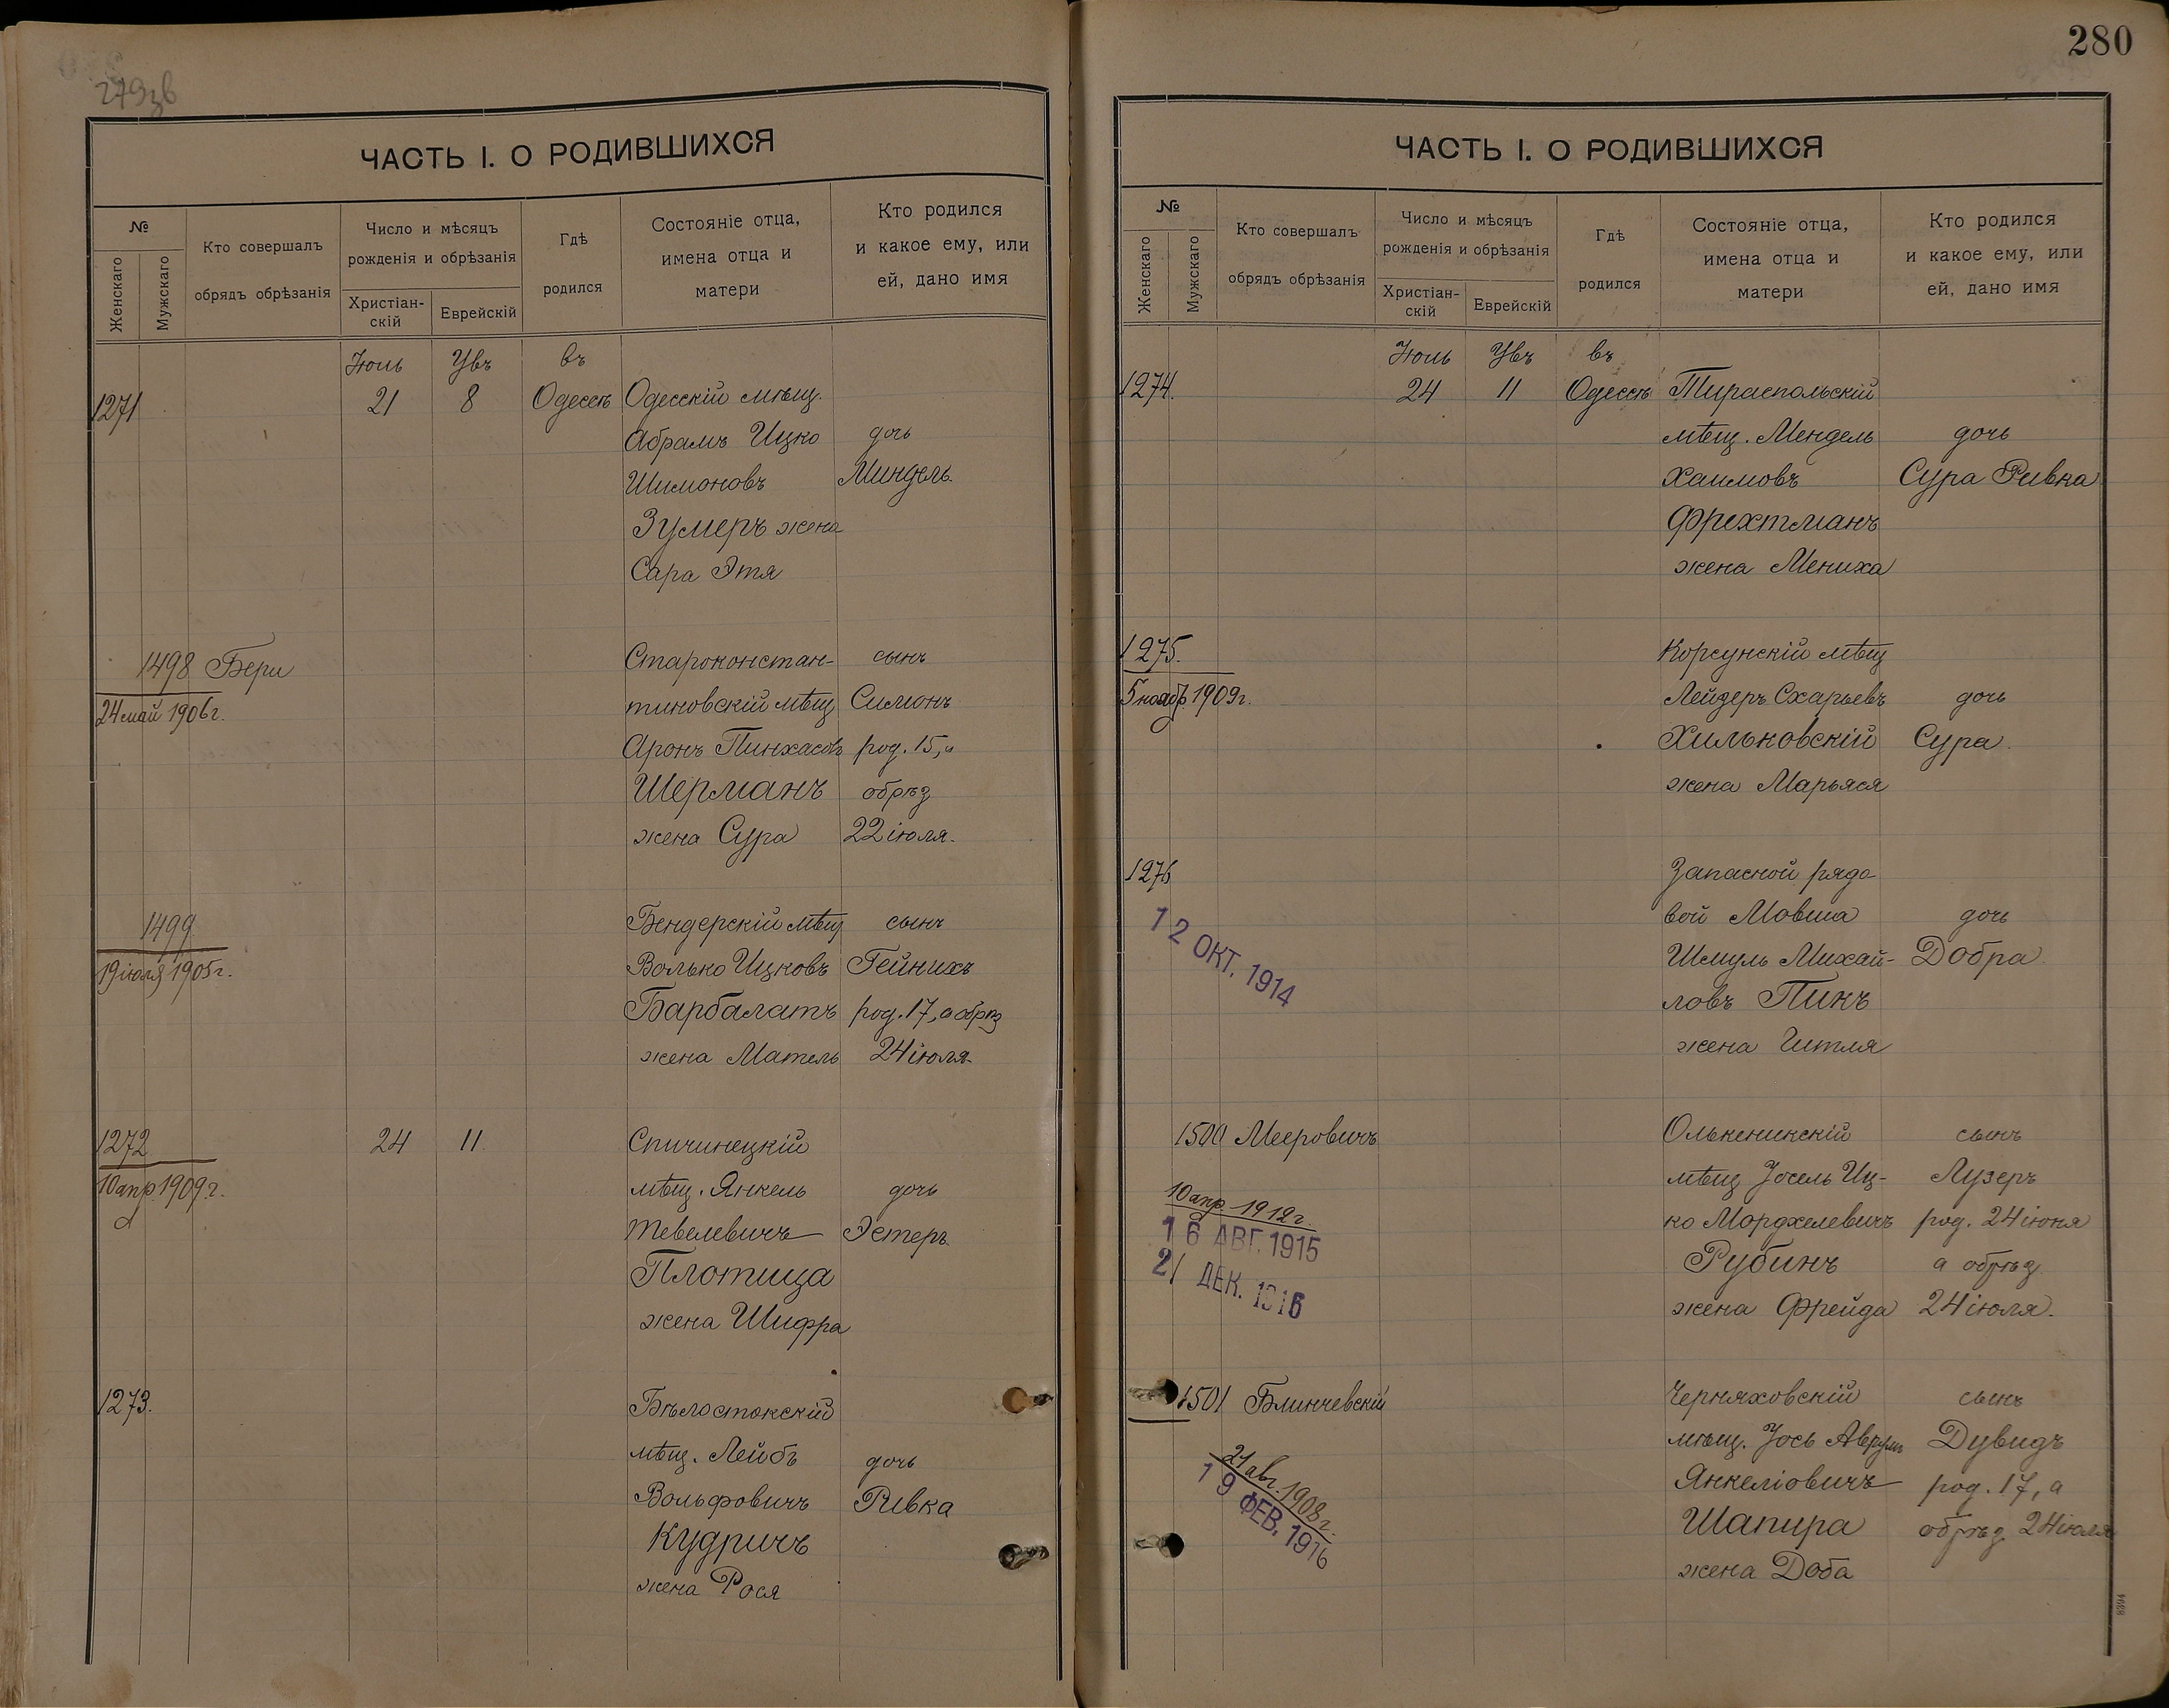 279зв
ЧАСТЬ I. О РОДИВШИХСЯ
№
Женскаго
Мужскаго
Кто совершалъ
обрядъ обрѣзанія
Число и мѣсяцъ
рожденія и обрѣзанія
Христіан-
скій
Еврейскій
Гдѣ
родился
Состояніе отца,
имена отца и
матери
Кто родился
и какое ему, или
ей, дано имя
Іюль Увъ въ
1271 21 8 Одессѣ Одесскій мѣщ.
Абрамъ Ицко дочь
Шимоновъ Миндель
Зумеръ жена
Сара Этя
1498 Бери Староконстан- сынъ
24 май 1906г. тиновскій мѣщ Симонъ
Аронъ Пинхасовъ род. 15, а
Шерманъ обрѣз
жена Сура 22 іюля.
1499 Бендерскій мѣщ сынъ
19 іюля 1905г. Волько Ицковъ Гейнихъ
Барбалатъ род. 17, а обрѣз
жена Матель 24 іюля.
1272 24 11 Спичинецкій
10 апр. 1909г. мѣщ. Янкель дочь
Тевелевичъ Эстеръ
Плотица
жена Шифра
1273. Бѣлостокскій
мѣщ. Лейбъ дочь
Вольфовичъ Ривка
Кудричъ
жена Рося
280
ЧАСТЬ I. О РОДИВШИХСЯ
№
Женскаго
Мужскаго
Кто совершалъ
обрядъ обрѣзанія
Число и мѣсяцъ
рожденія и обрѣзанія
Христіан-
скій
Еврейскій
Гдѣ
родился
Состояніе отца,
имена отца и
матери
Кто родился
и какое ему, или
ей, дано имя
Іюль Увъ въ
1274. 24 11 Одессѣ Тираспольскій
мѣщ. Мендель дочь
Хаимовъ Сура Ривка
Фрехтманъ
жена Мениха
1275. Корсунскій мѣщ
5 ноябр 1909г. Лейзеръ Схарьевъ дочь
Хильковскій Сура
жена Марьяся
1276 Запасной рядо
вой Мовша дочь
12 ОКТ. 1914 Шмуль Михай- Добра
ловъ Пинъ
жена Гитля
1500 Мееровичъ Олькеникскій сынъ
мѣщ Іосель Иц- Лузеръ
10 апр. 1912г. ко Мордхелевичъ род. 24 іюня
16 АВГ. 1915 Рубинъ а обрѣз
21 ДЕК. 1916 жена Фрейда 24 іюля.
1501 Блинчевскій Черняховскій сынъ
мѣщ. Іось Аврумъ Дувидъ
21 авг. 1908г. Янкеліовичъ род. 17, а
19 ФЕВ. 1916 Шапира обрѣз 24 іюля
жена Доба
8394